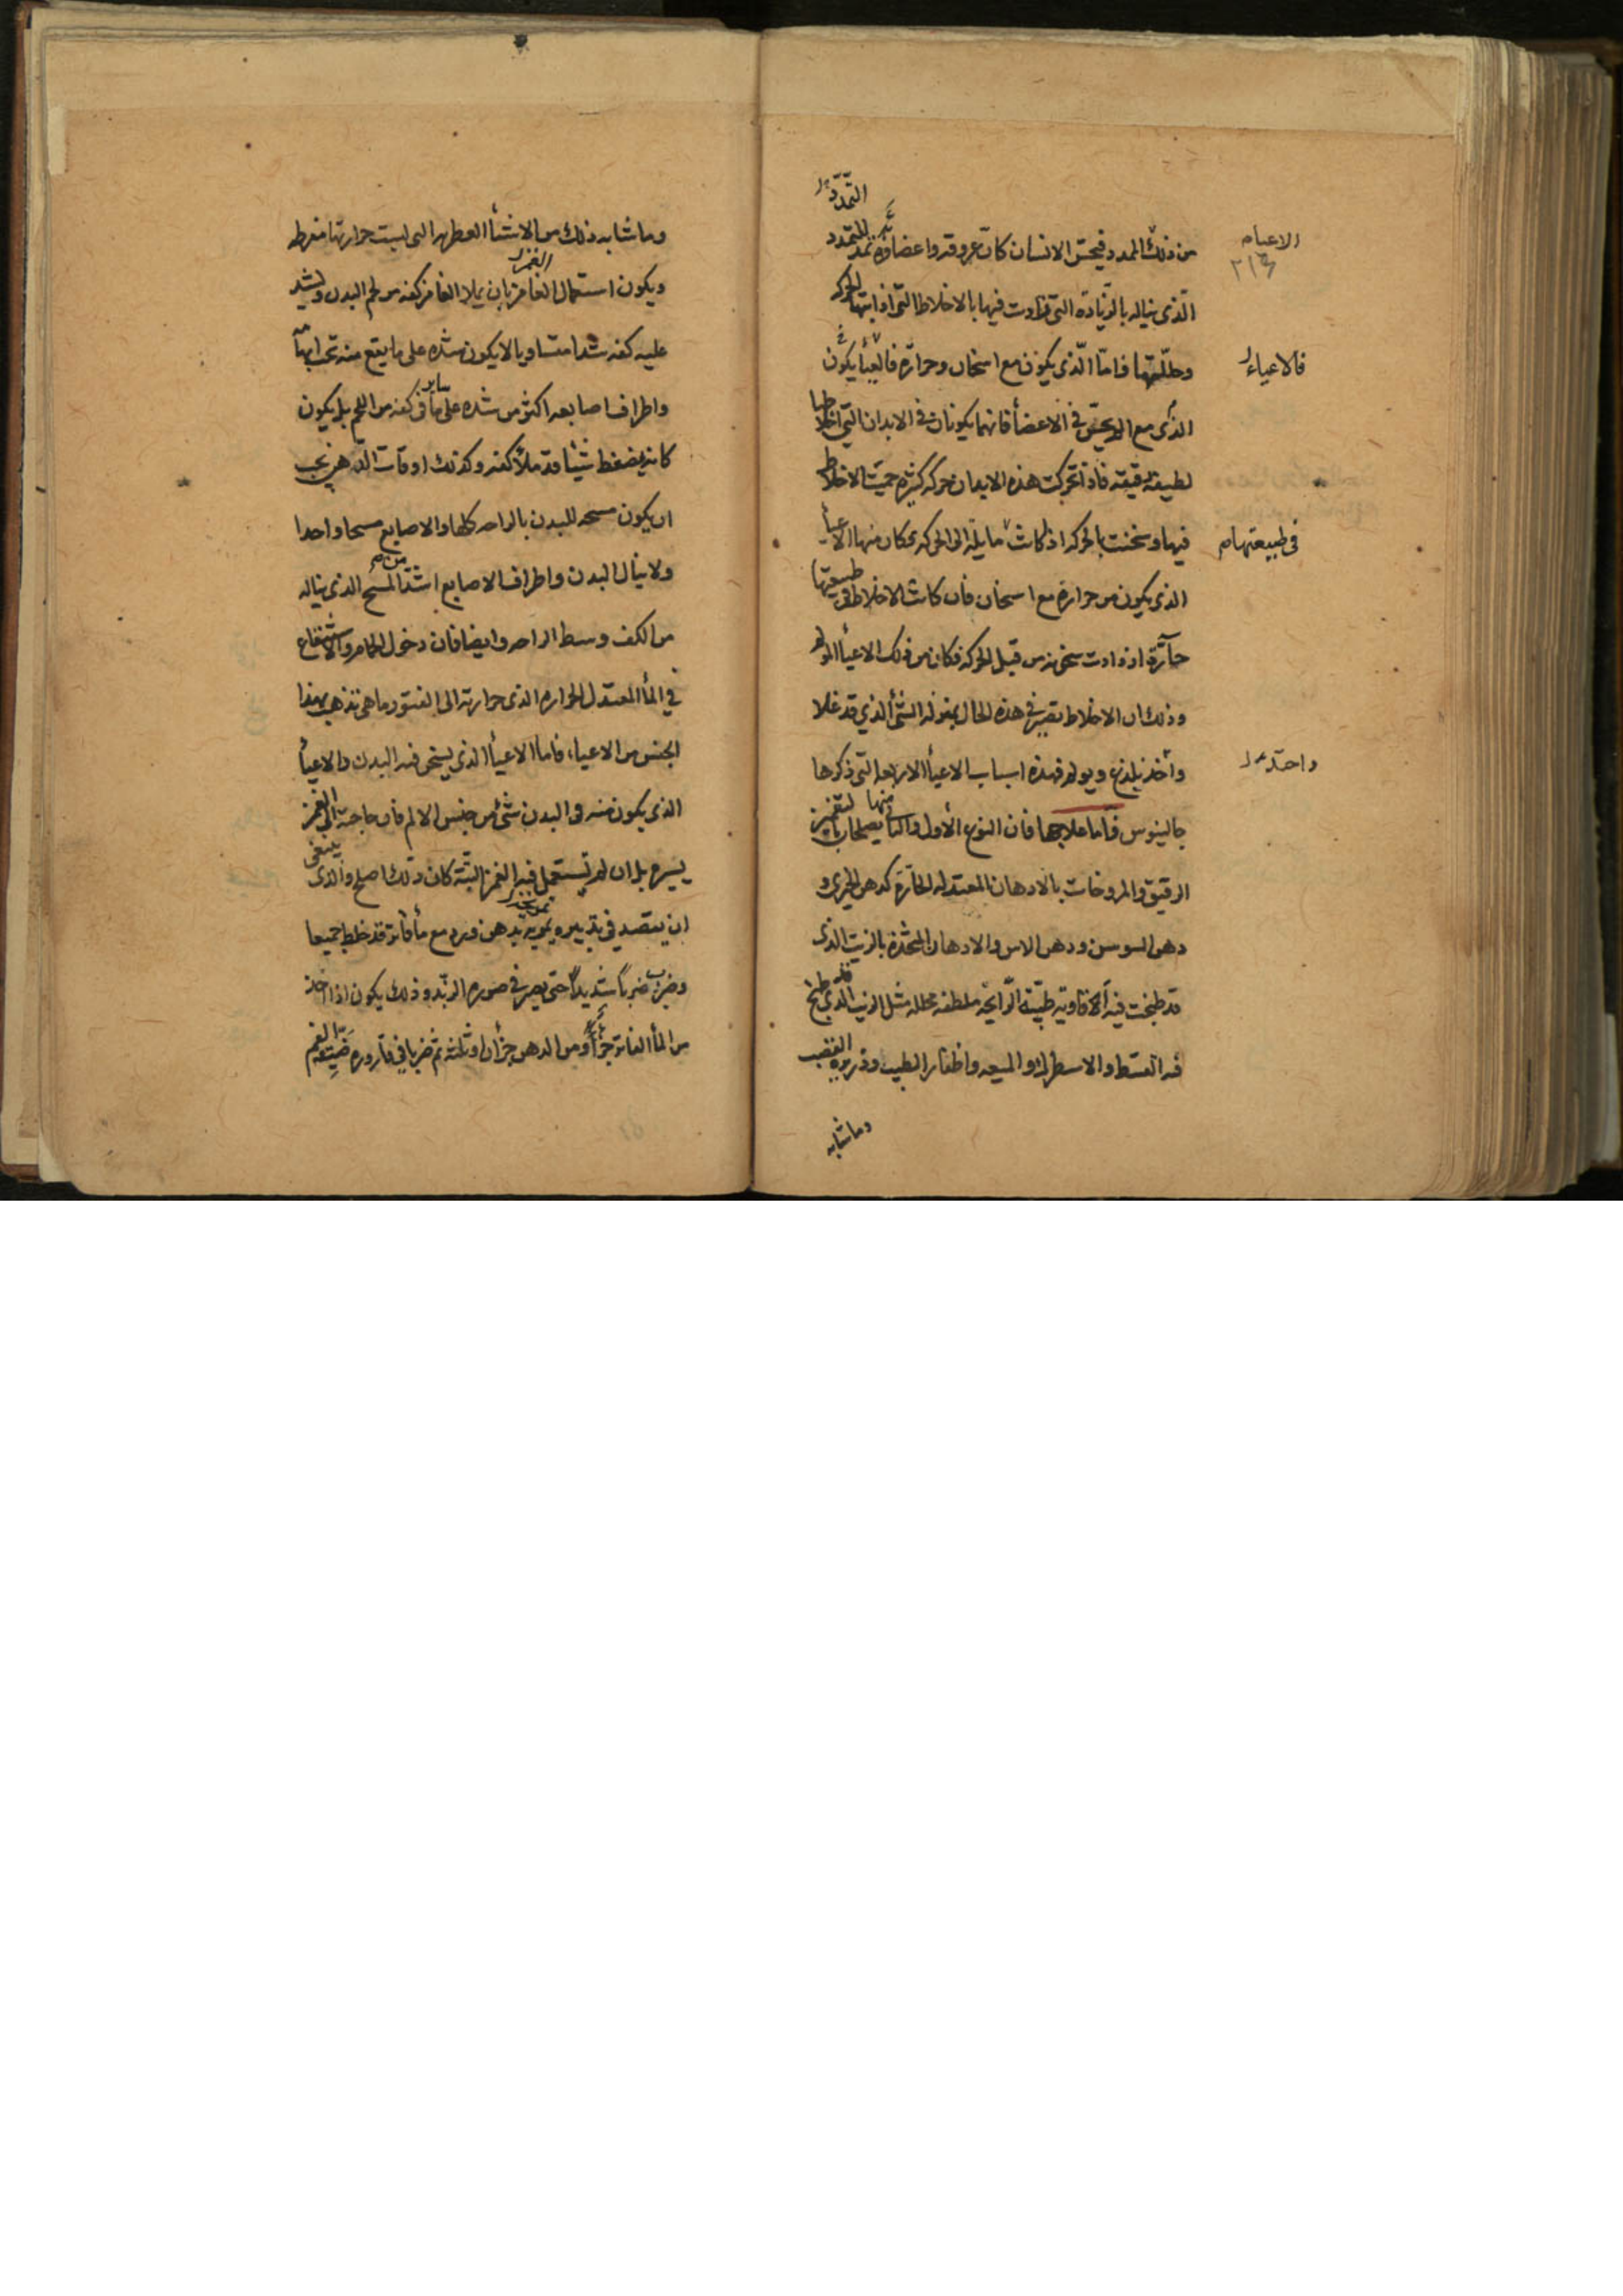 التمدد
من ذلك المدد فيحس الانسان كان عروقه واعضاؤه تمدد للتمدد
الاعياء
٢١٣
الذي يناله بالزيادة التي زادت فيها بالاخلاط التي اذابتها الحركه
وحللتها فاما الذي يكون مع اسخان وحرارة يكون
فالاعياء
الذي مع في الاعضأ فانهما يكونان في الابدان التي اخلاطها
لطيفة رقيقة فاذا تحركت هذه الابدان حركه كثيره حميت الاخلاط
فيها وسخنت بالحركه اذ كانت مايلة الى الحركه فكان منها الاعيأ
في طبيعتها م
الذي يكون من حرارة مع اسخان فان كانت الاخلاط في طبيعتها
حآرة ازدادت سخونه من قبل الحركة فكان من ذلك الاعيأ
وذلك ان الاخلاط تصير في هذه الحال بمنزله الشئ الذي قد غلا
وأخذ يلذع ويولم فهذه اسباب الاعيأ الاربعه التي ذكرها
واحتد
جالينوس فأما علاجها فان النوع الأول والثاني منها يصلحان بالتغميز
الرقيق والمروخات بالادهان المعتدله الحآرة كدهن الخيري و
دهن السوسن ودهن الاس والادهان المتخذة بالزيت الذي
قد طبخت فيه الافاويه طيبة الرايحة ملطفه محلله مثل الزيت الذي قد طبخ
فيه القسط والاسطرك والميعه واظفار الطيب وذريره القصب
وماشابه
وماشابه ذلك من الاشيأ العطره التي ليست حرارتها مفرطه
ويكون استعمال الغامز الغمز بان يملا الغامز كفه من لحم البدن ويشد
عليه كفه شدا متساويا لا يكون شده على ما يقع منه تحت ابهامه
واطراف اصابعه اكثر من شده على ساير ما في كفه من اللحم بل يكون
كانه يضغط شيئا قد ملأ كفه وكذلك اوقات الدهن يجب
ان يكون مسحه للبدن بالراحه كلها والاصابع مسحا واحدا
ولا ينال البدن واطراف الاصابع اشد من المسح الذي يناله
من الكف وسط الراحه وايضا فان دخول الحمام والاستنقاع
في المأ المعتدل الحراره الذي حرارته الى الفتور ماهي تذهب بهذا
الجنس من الاعياء، فاما الاعيأ الذي يسخن فيه البدن والاعيأ
الذي يكون منه في البدن شئ من جنس الالم فان حاجته الى الغمز
يسيره بل ان لم تستعمل فيه الغمز البتة كان ذلك اصلح والذى ينبغي
ان يقصد في تدبيره تمريخه بدهن ورد مع مأ فاتر قد خلطا جميعا
وضربا ضربا شديدا حتى يصير في صوره الزبد وذلك يكون اذا اخذ
من المأ الفاتر جزأ ومن الدهن جزأن او ثلثه ثم ضربا في قاروره ضيقة الفم